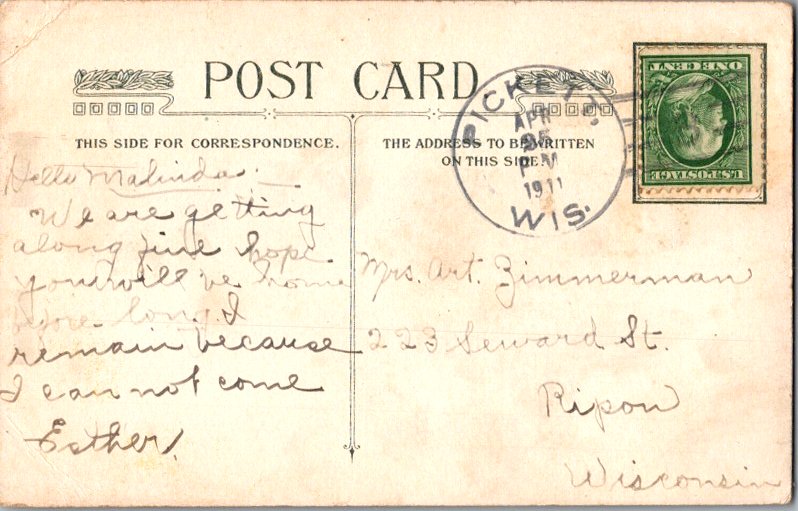 POST CARD
THIS SIDE FOR CORRESPONDENCE.
THE ADDRESS TO BE WRITTEN
ON THIS SIDE.
PICKETT,
APR
25
PM
1911
WIS.
U.S.POSTAGE
ONE CENT
Hello Malinda.
We are getting
along fine hope
you will be home
before long I
remain because
I can not come
Esther.
Mrs. Art. Zimmerman
223 Seward St.
Ripon
Wisconsin